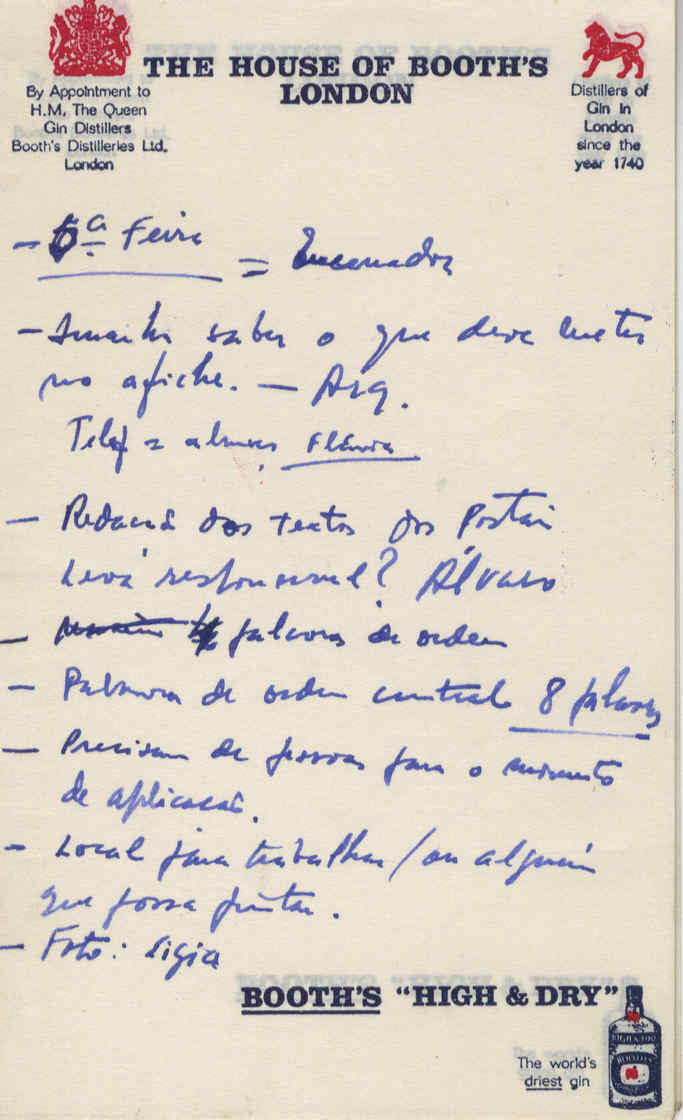 THE HOUSE OF BOOTH'S
LONDON
By Appointment to
H.M. The Queen
Gin Distillers
Booth's Distilleries Ltd.
London
Distillers of
Gin in
London
since the
year 1740
- 6ª Feira =
- Amanhã saber o que deve meter
no afiche. - Arq.
Telef =
- Redacção dos textos dos
Será responsavel? Álvaro
- palavras de ordem
- Palavra de ordem central 8 palavras
- Precisam de pessoas para o momento
de aplicação.
- Local para trabalhar / ou alguém
que possa pintar.
- Foto: Ligia
BOOTH'S "HIGH & DRY"
The world's
driest gin
HIGH & DRY
BOOTH'S